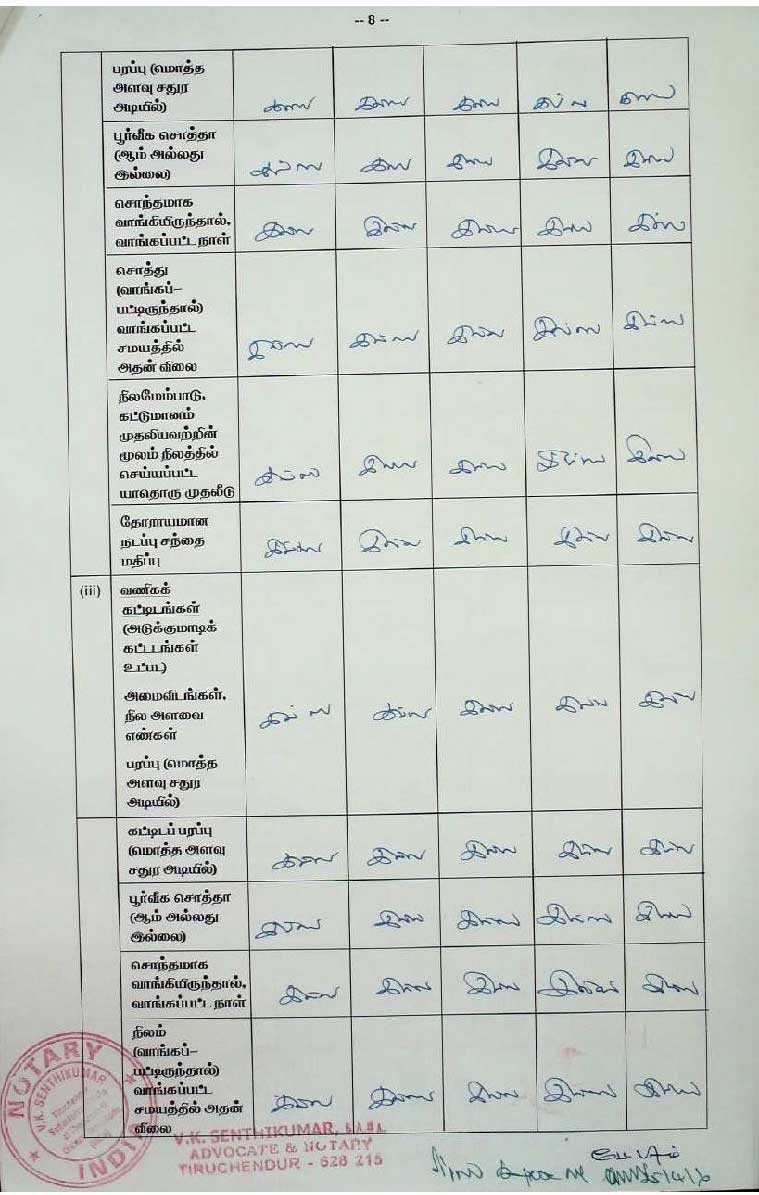 -- 8 --
பரப்பு (மொத்த
அளவு சதுர
அடியில்)
இல்லை இல்லை இல்லை இல்லை இல்லை
பூர்வீக சொத்தா
(ஆம் அல்லது
இல்லை)
இல்லை இல்லை இல்லை இல்லை இல்லை
சொந்தமாக
வாங்கியிருந்தால்,
வாங்கப்பட்ட நாள்
இல்லை இல்லை இல்லை இல்லை இல்லை
சொத்து
(வாங்கப்–
பட்டிருந்தால்)
வாங்கப்பட்ட
சமயத்தில்
அதன் விலை
இல்லை இல்லை இல்லை இல்லை இல்லை
நிலமேம்பாடு,
கட்டுமானம்
முதலியவற்றின்
மூலம் நிலத்தில்
செய்யப்பட்ட
யாதொரு முதலீடு
இல்லை இல்லை இல்லை இல்லை இல்லை
தோராயமான
நடப்பு சந்தை
மதிப்பு
இல்லை இல்லை இல்லை இல்லை இல்லை
(iii) வணிகக்
கட்டிடங்கள்
(அடுக்குமாடிக்
கட்டடங்கள்
உட்பட)
அமைவிடங்கள்,
நில அளவை
எண்கள்
பரப்பு (மொத்த
அளவு சதுர
அடியில்)
இல்லை இல்லை இல்லை இல்லை இல்லை
கட்டிடப் பரப்பு
(மொத்த அளவு
சதுர அடியில்)
இல்லை இல்லை இல்லை இல்லை இல்லை
பூர்வீக சொத்தா
(ஆம் அல்லது
இல்லை)
இல்லை இல்லை இல்லை இல்லை இல்லை
சொந்தமாக
வாங்கியிருந்தால்,
வாங்கப்பட்ட நாள்
இல்லை இல்லை இல்லை இல்லை இல்லை
நிலம்
(வாங்கப்–
பட்டிருந்தால்)
வாங்கப்பட்ட
சமயத்தில் அதன்
விலை
இல்லை இல்லை இல்லை இல்லை இல்லை
NOTARY
V.K. SENTHIKUMAR
INDIA
V.K. SENTHIKUMAR, B.A.B.L.
ADVOCATE & NOTARY
TIRUCHENDUR - 628 215